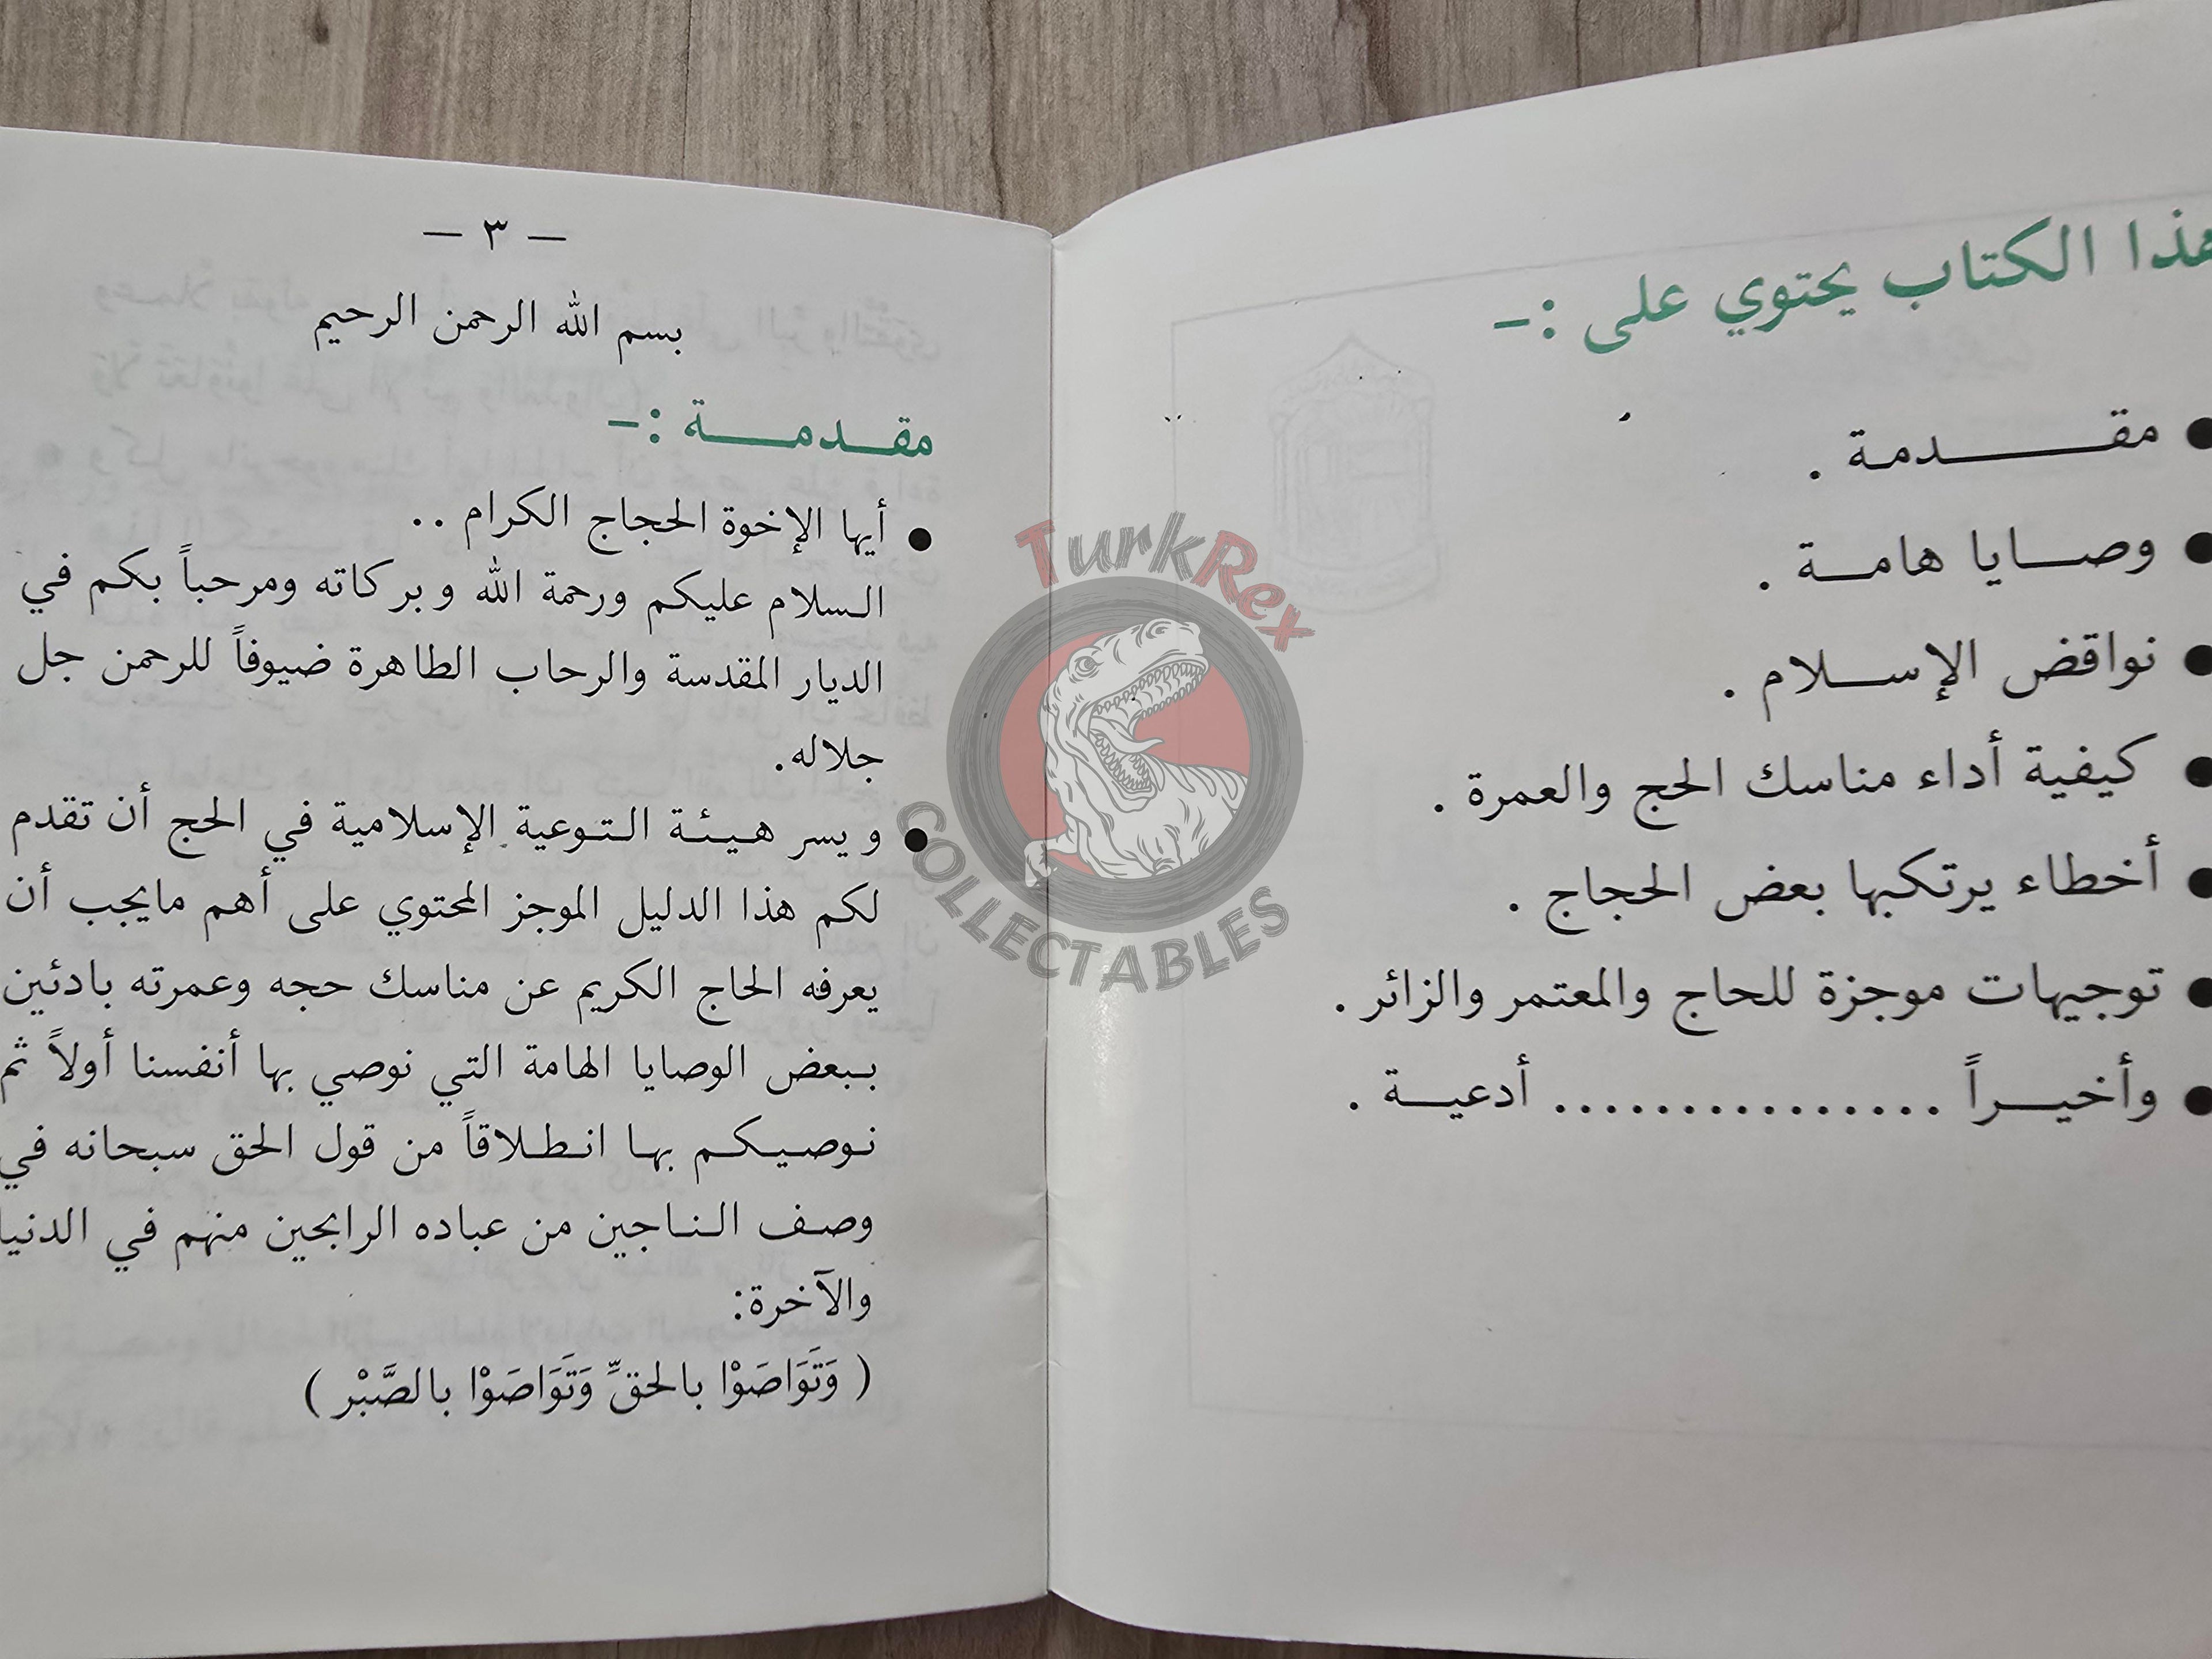 هذا الكتاب يحتوي على :-
● مقـــــدمة .
● وصـــايا هامـــة .
● نواقض الإســـلام .
● كيفية أداء مناسك الحج والعمرة .
● أخطاء يرتكبها بعض الحجاج .
● توجيهات موجزة للحاج والمعتمر والزائر .
● وأخيـــراً ................ أدعيـــة .
— ٣ —
بسم الله الرحمن الرحيم
مقـــدمـــــة :-
● أيها الإخوة الحجاج الكرام ..
السلام عليكم ورحمة الله وبركاته ومرحباً بكم في
الديار المقدسة والرحاب الطاهرة ضيوفاً للرحمن جل
جلاله.
● ويسر هيئة التوعية الإسلامية في الحج أن تقدم
لكم هذا الدليل الموجز المحتوي على أهم مايجب أن
يعرفه الحاج الكريم عن مناسك حجه وعمرته بادئين
ببعض الوصايا الهامة التي نوصي بها أنفسنا أولاً ثم
نوصيكم بها انطلاقاً من قول الحق سبحانه في
وصف الناجين من عباده الرابحين منهم في الدنيا
والآخرة:
( وَتَوَاصَوْا بالحقِّ وَتَوَاصَوْا بالصَّبْر )
TurkRex
COLLECTABLES